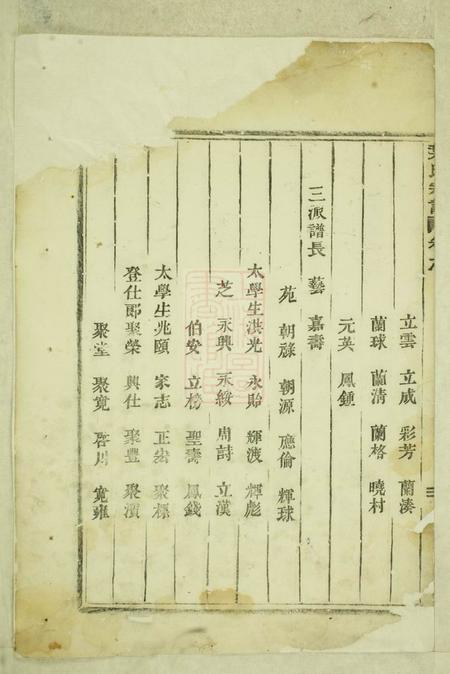 立雲 立成 彩芳 蘭湊
蘭球 蘭清 蘭格 曉村
元英 鳳鍾
三派譜長 藝 嘉壽
苑 朝祿 朝源 應倫 輝球
太學生洪光 永貽 輝渡 輝彪
芝 永興 永綏 周詩 立漢
伯安 立榜 聖壽 鳳錢
太學生兆頤 家志 正宏 聚標
登仕郎聚榮 興仕 聚豐 聚濱
聚堂 聚寬 啓川 寬雍